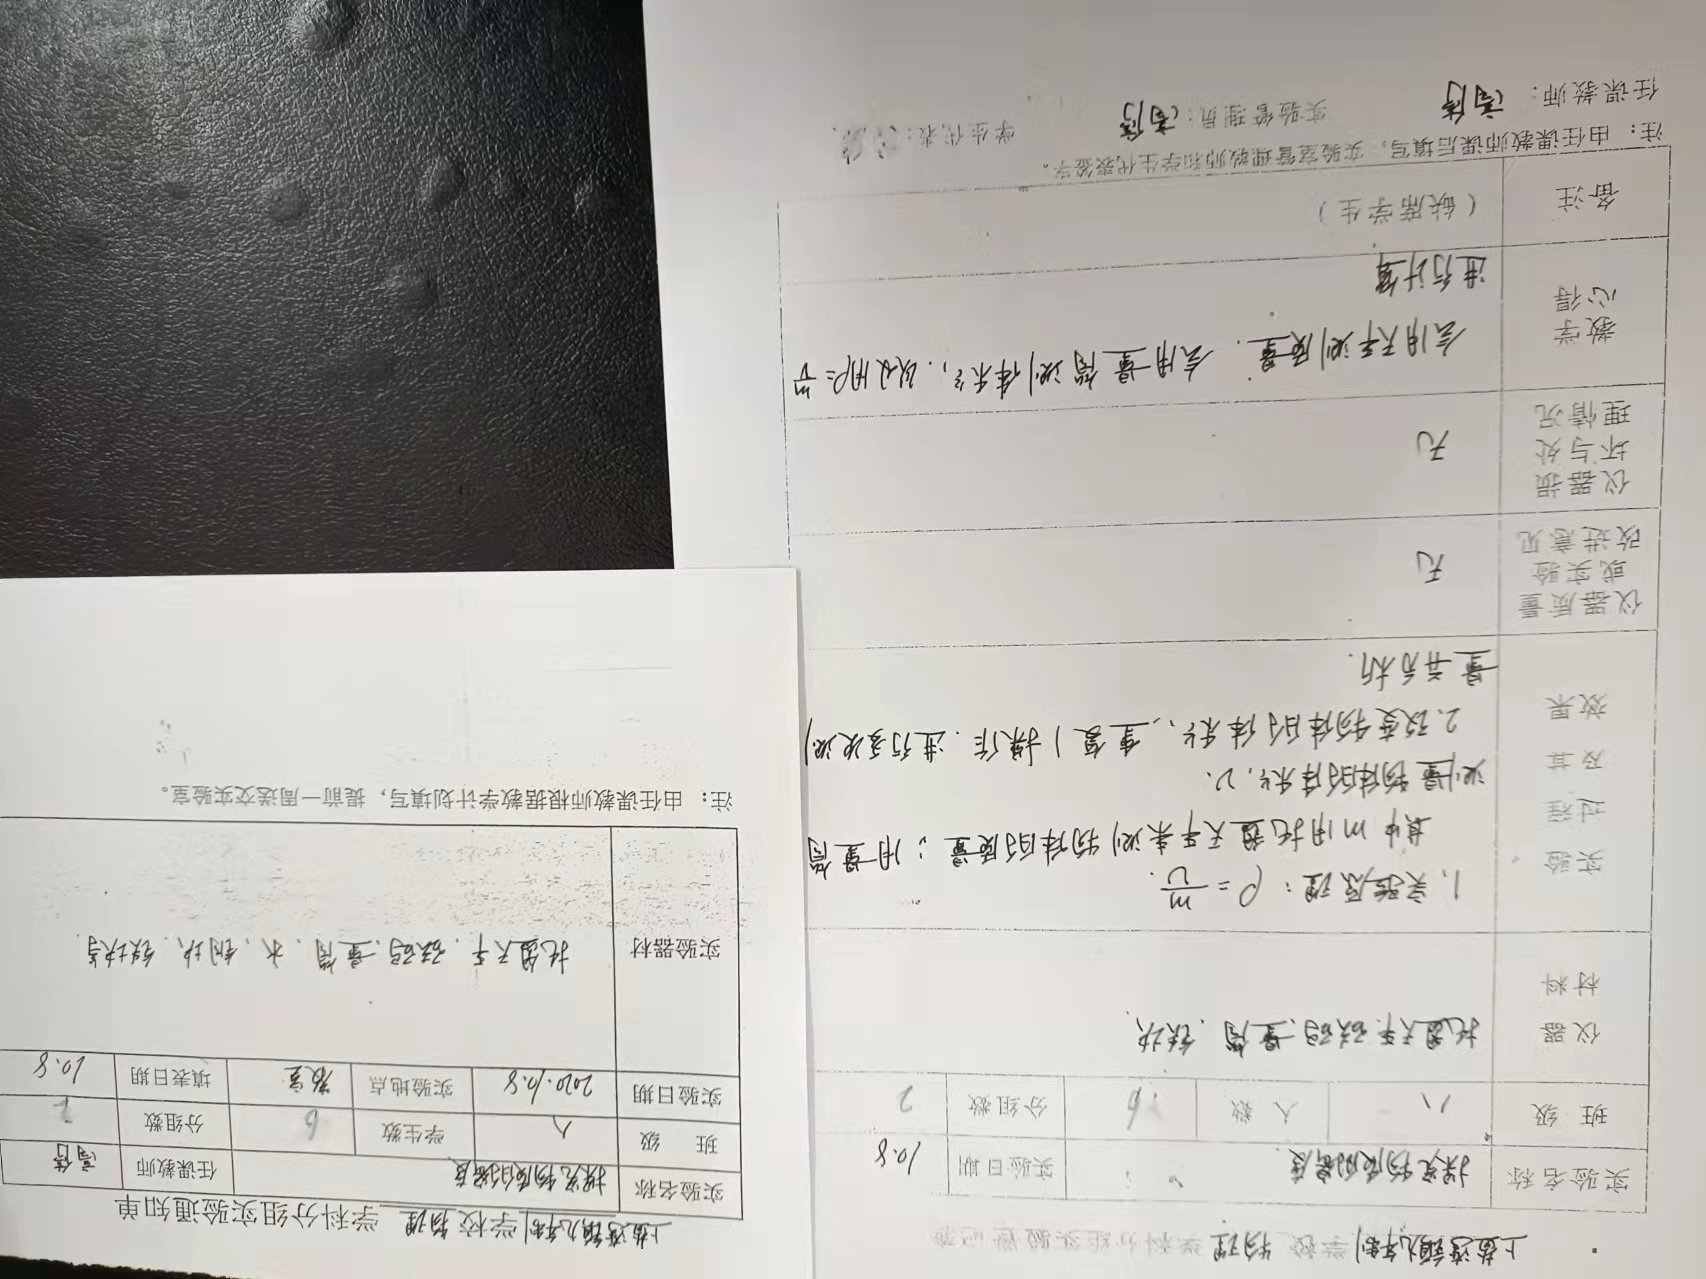 学校 物理 学科分组实验通知单
实验名称 探究物质的密度 任课教师
班 级 八 学生数 6 分组数 2
实验日期 2020.10.8 实验地点 教室 填表日期 10.8
实验器材 托盘天平、砝码、量筒、水、铜块、铁块等
注：由任课教师根据教学计划填写，提前一周送交实验室。
学校 物理 学科分组实验
实验名称 探究物质的密度 实验日期 10.8
班 级 八 人 数 6 分组数 2
仪器
材料
托盘天平、砝码、量筒、铁块
实验
过程
及其
效果
1、实验原理：ρ=m/V.
其中m用托盘天平来测物体的质量；用量筒
测量物体的体积V.
2.改变物体的体积、重复1操作.进行多次测
量并分析.
仪器质量
或实验
改进意见
无
仪器损
坏与处
理情况
无
教学
心得
会用天平测质量.会用量筒测体积，以及用ρ=m/V
进行计算
备注
（缺席学生）
注：由任课教师课后填写，实验室管理教师和学生代表签字。
任课教师： 实验管理员： 学生代表：